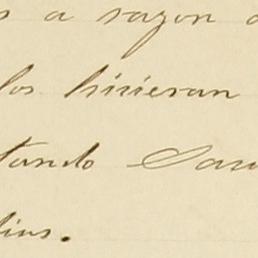 s a razon
los hicieran
tando Sau
dius.